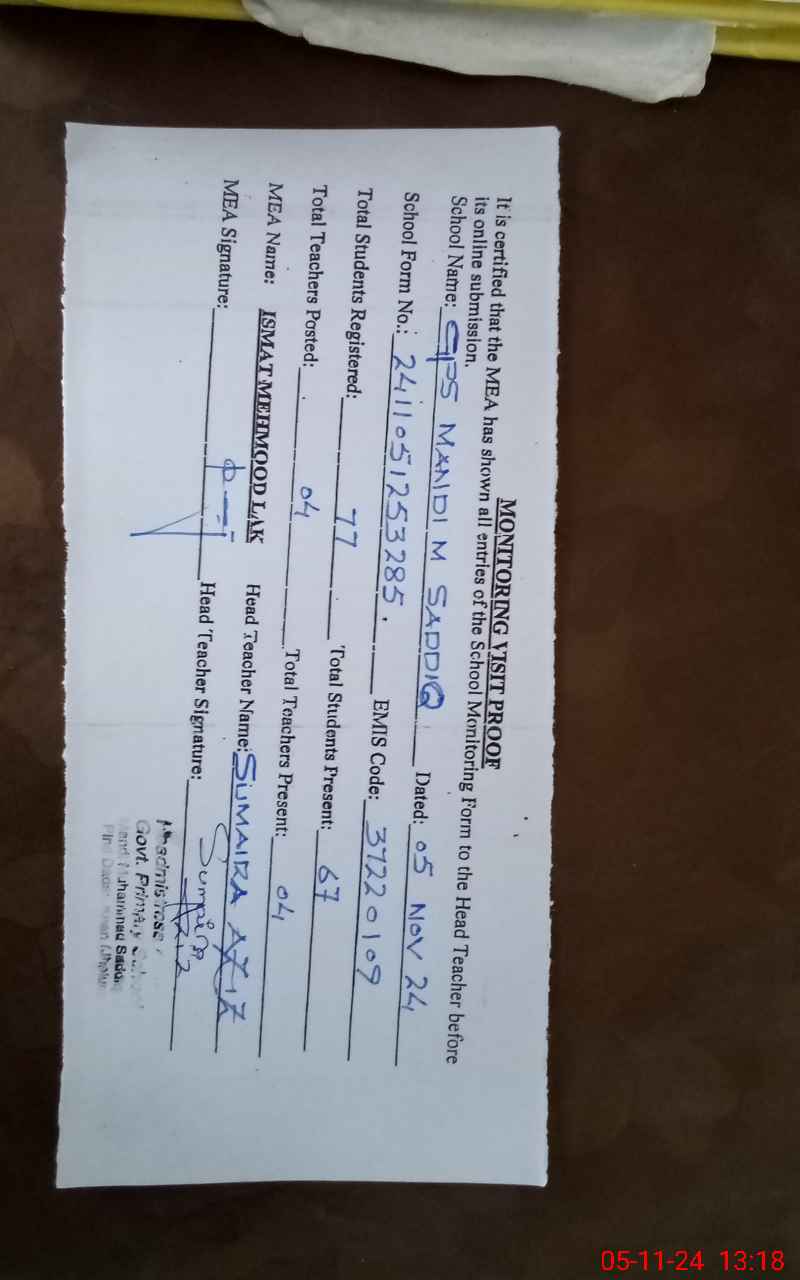 MONITORING VISIT PROOF
It is certified that the MEA has shown all entries of the School Monitoring Form to the Head Teacher before
its online submission.
School Name: GPS MANDI M SADDIQ Dated: 05 NOV 24
School Form No.: 2411051253285. EMIS Code: 37220109
Total Students Registered: 77 Total Students Present: 67
Total Teachers Posted: 04 Total Teachers Present: 04
MEA Name: ISMAT MEHMOOD LAK Head Teacher Name: SUMAIRA AZIZ
MEA Signature: Head Teacher Signature: Sumaira
Aziz
Govt. Primary
Muhammad
05-11-24 13:18